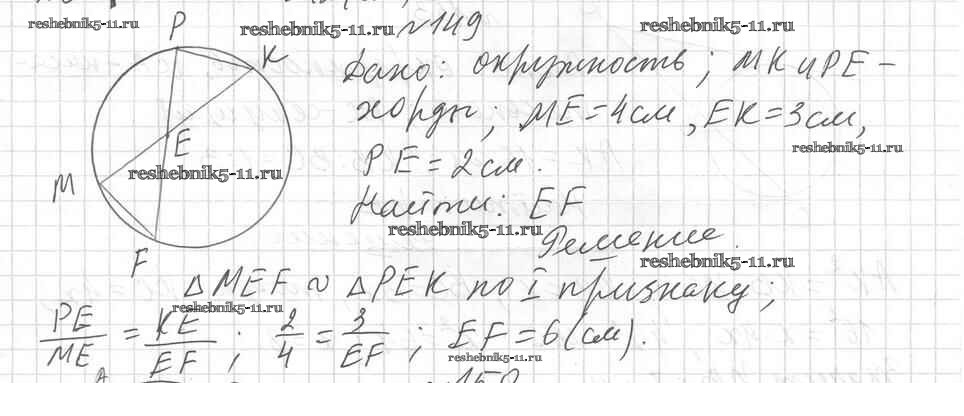 reshebnik5-11.ru
reshebnik5-11.ru
№149
reshebnik5-11.ru
P
K
Дано: окружность; MK и PE –
хорды; ME=4см, EK=3см,
reshebnik5-11.ru
E
reshebnik5-11.ru
PE=2см.
M
Найти: EF
reshebnik5-11.ru
Решение.
reshebnik5-11.ru
F
△MEF ∾ △PEK по I признаку;
reshebnik5-11.ru
PE/ME = KE/EF ; 2/4 = 3/EF ; EF=6(см).
reshebnik5-11.ru